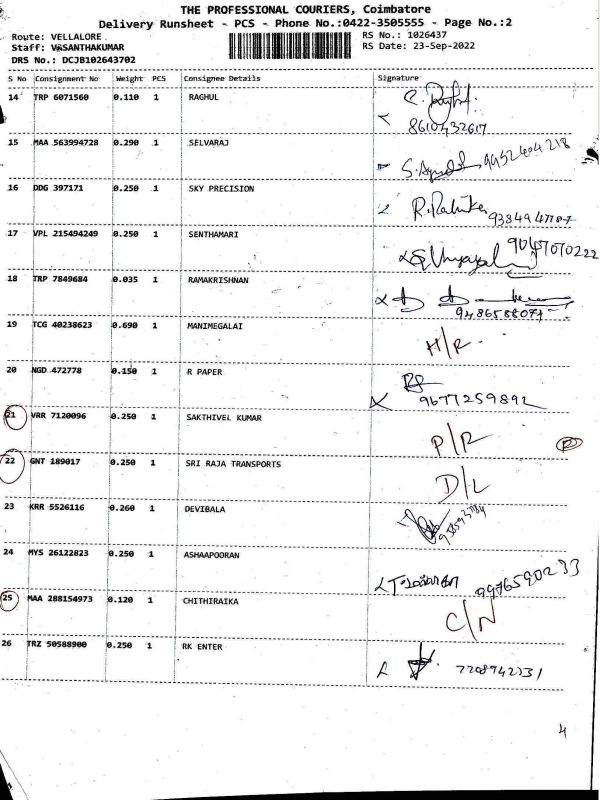 THE PROFESSIONAL COURIERS, Coimbatore
Delivery Runsheet - PCS - Phone No.:0422-3505555 - Page No.:2
Route: VELLALORE RS No.: 1026437
Staff: VASANTHAKUMAR RS Date: 23-Sep-2022
DRS No.: DCJB102643702
S No Consignment No Weight PCS Consignee Details Signature
14 TRP 6071560 0.110 1 RAGHUL
8610432617
15 MAA 563994728 0.290 1 SELVARAJ
9952404218
16 DDG 397171 0.250 1 SKY PRECISION
17 VPL 215494249 0.250 1 SENTHAMARI
18 TRP 7849684 0.035 1 RAMAKRISHNAN
19 TCG 40238623 0.690 1 MANIMEGALAI
H/R
20 NGD 472778 0.150 1 R PAPER
9677259892
21 VRR 7120096 0.250 1 SAKTHIVEL KUMAR
P/R
22 GNT 189017 0.250 1 SRI RAJA TRANSPORTS
D/L
23 KRR 5526116 0.260 1 DEVIBALA
24 MYS 26122823 0.250 1 ASHAAPOORAN
9976590233
25 MAA 288154973 0.120 1 CHITHIRAIKA
C/N
26 TRZ 50588900 0.250 1 RK ENTER
4